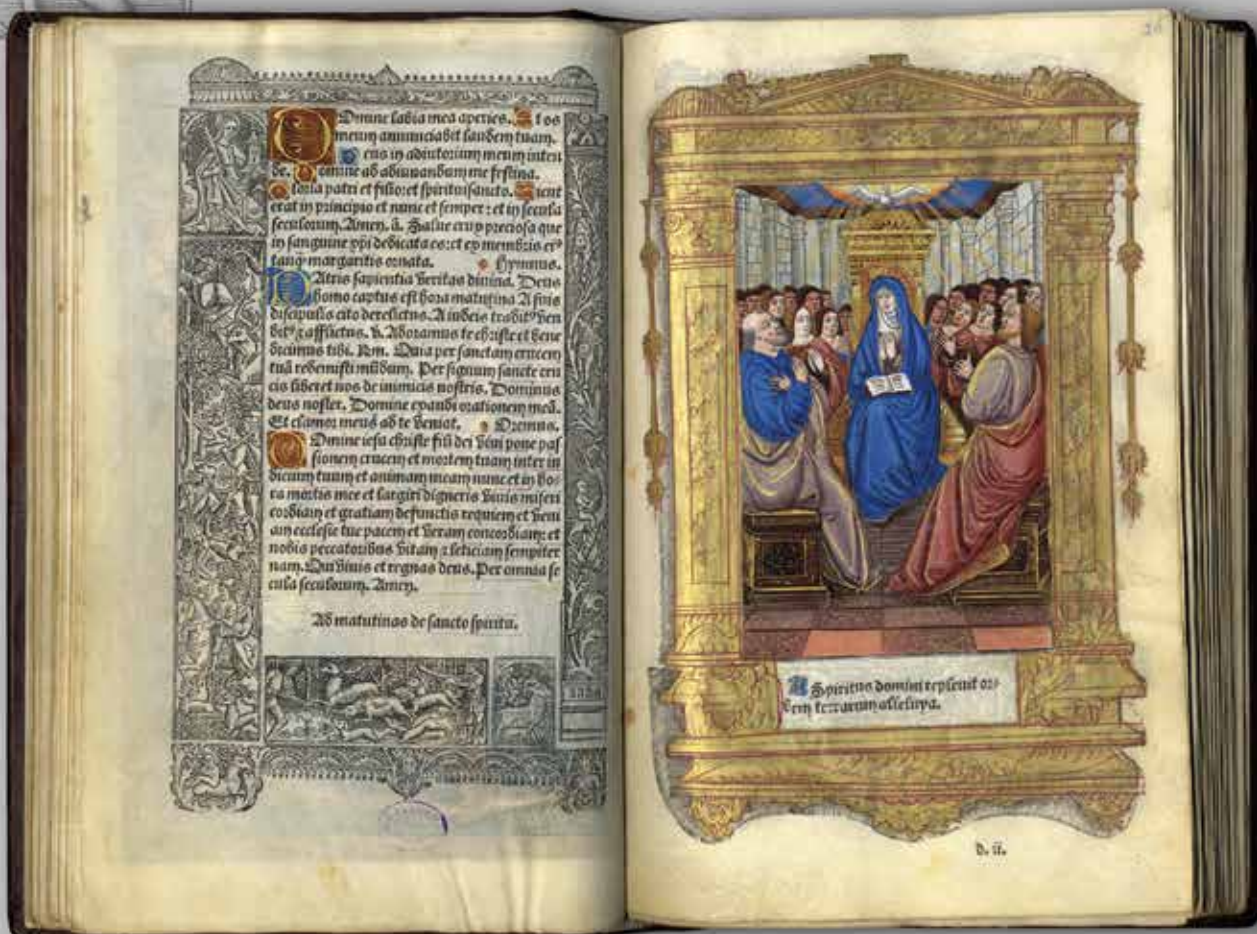 Domine labia mea aperies. Et os
meum annunciabit laudem tuam.
Deus in adiutorium meum inten
de. Domine ad adiuvandum me festina.
Gloria patri et filio: et spirituisancto. Sicut
erat in principio et nunc et semper: et in secula
seculorum. Amen. ã. Salve crux preciosa que
in sanguine xpi dedicata es: et ex membris eiꝰ
tanqͣ margaritis ornata. Hymnus.
PAtris sapientia veritas divina. Deus
homo captus est hora matutina A suis
discipulis cito derelictus. A iudeis traditꝰ ven
ditꝰ ⁊ afflictus. v. Adoramus te christe et bene
dicimus tibi. Rm. Quia per sanctam crucem
tuã redemisti mũdum. Per signum sancte cru
cis liberet nos de inimicis nostris. Dominus
deus noster. Domine exaudi orationem meã.
Et clamor meus ad te veniat. Oremus.
DOmine iesu christe fili dei vivi pone pas
sionem crucem et mortem tuam inter iu
dicium tuum et animam meam nunc et in ho
ra mortis mee et largiri digneris vivis miseri
cordiam et gratiam defunctis requiem et veni
am ecclesie tue pacem et veram concordiam: et
nobis peccatoribus vitam ⁊ leticiam sempiter
nam. Qui vivis et regnas deus. Per omnia se
cula seculorum. Amen.
Ad matutinas de sancto spiritu.
Spiritus domini replevit or-
bem terrarum alleluya.
d. ii.